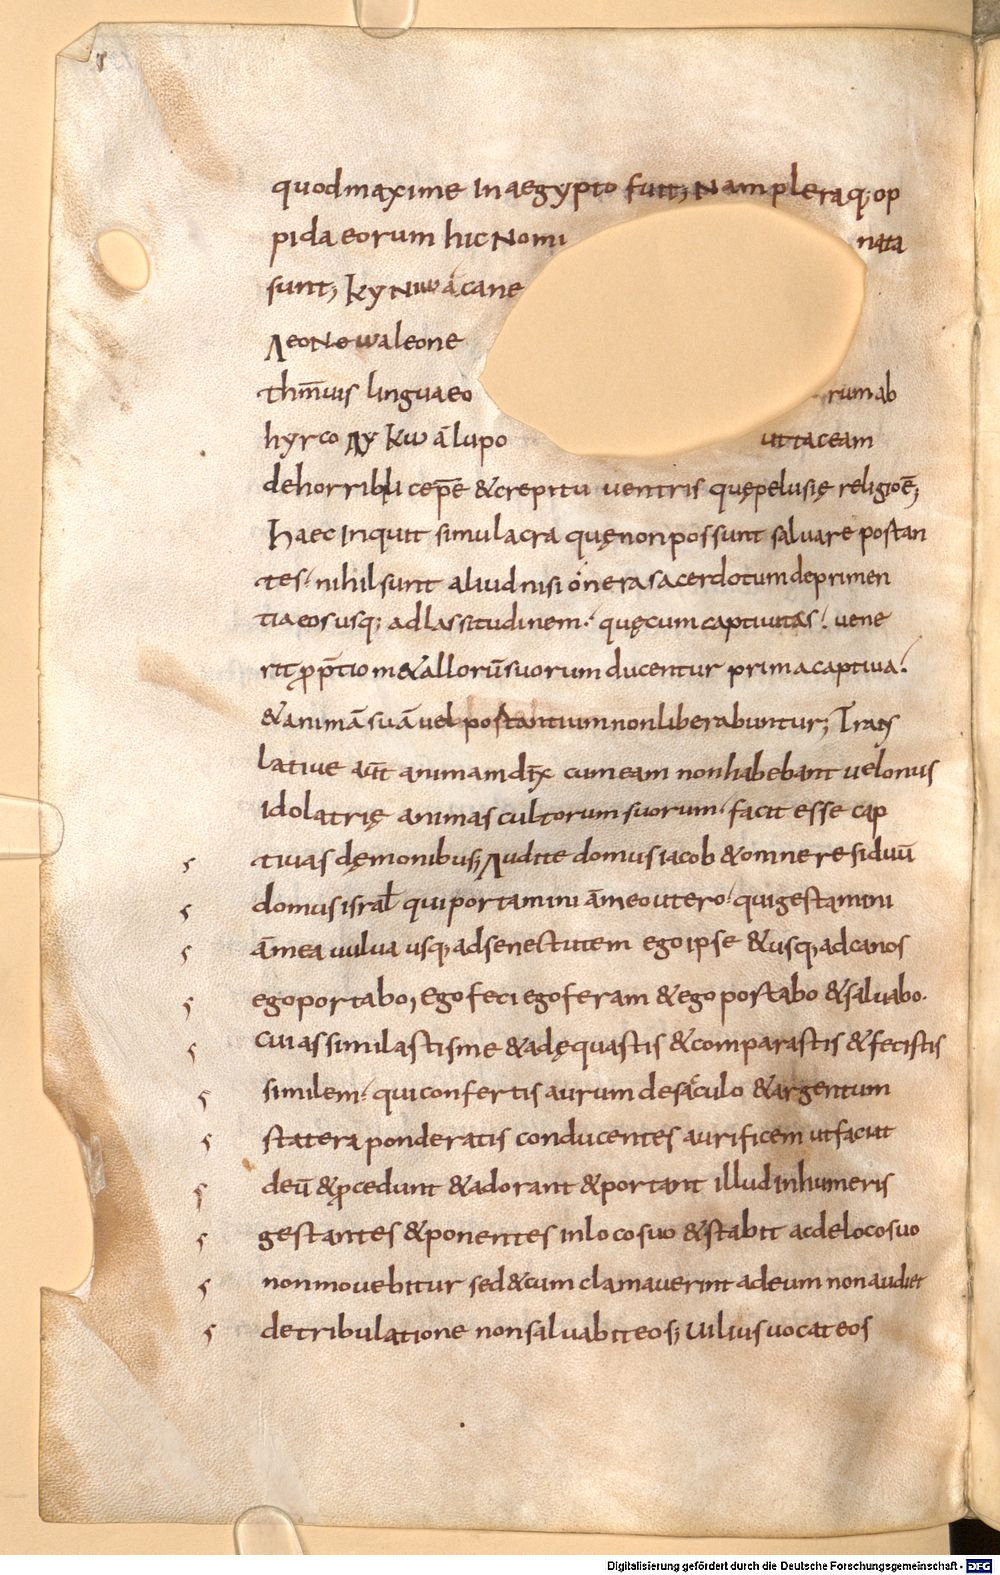 quodmaxime In aegypto fuit; Nam pleraq; op
pida eorum hic Nomi nata
sunt; KyNων a cane
ΛeoNωN a leone
thm̄uis lingua eo rum ab
hyrco Λy Kων ā lupo ut taceam
dehorribili cepēe & crepitu ventris quę pelusię religioē;
Haec Inquit simulacra quę non possunt salvare portan
tes· nihil sunt aliud nisi onera sacerdotum deprimen
tia eos usq; ad lassitudinem· quę cum captivitas· vene
rit ꝓp̄tiom & allorū suorum ducentur prima captiva·
& animā suā vel portantium non liberabuntur; Trans
lative aūt animam dix̄ cum eam non habebant vel onus
idolatrię animas cultorum suorum· facit esse cap
tivas dęmonibus; Audite domus iacob & omne residuū
domus israł qui portamini ām eo utero· qui gestamini
ām ea vulva usq; ad senectutem ego ipse & usq; ad canos
ego portabo, Ego feci ego feram & ego portabo & salvabo·
cui assimilastis me & adęquastis & comparastis & fecistis
similem· qui confertis aurum de sacculo & argentum
statera ponderatis conducentes aurificem ut faciat
deū & ꝓcedunt & adorant & portant illud in humeris
gestantes & ponentes in loco suo & stabit ac de loco suo
non movebitur sed & cum clamaverint ad eum non audiet
de tribulatione non salvabit eos; Vilius vocat eos
Digitalisierung gefördert durch die Deutsche Forschungsgemeinschaft - DFG